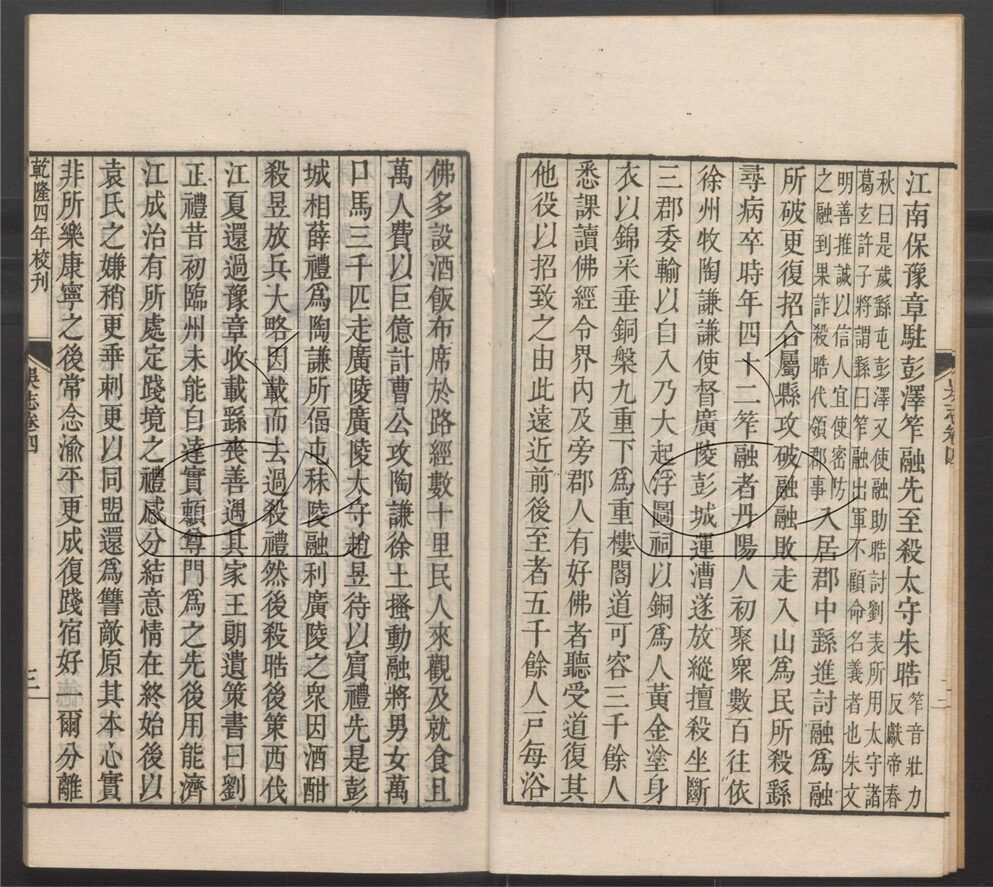 江南保豫章駐彭澤笮融先至殺太守朱晧笮音壯力
反獻帝春
秋曰是歲繇屯彭澤又使融助晧討劉表所用太守諸
葛玄許子將謂繇曰笮融出軍不顧命名義者也朱文
明善推誠以信人宜使密防
之融到果詐殺晧代領郡事入居郡中繇進討融爲融
所破更復招合屬縣攻破融融敗走入山爲民所殺繇
尋病卒時年四十二笮融者丹陽人初聚衆數百往依
徐州牧陶謙謙使督廣陵彭城運漕遂放縱擅殺坐斷
三郡委輸以自入乃大起浮圖祠以銅爲人黃金塗身
衣以錦采垂銅槃九重下爲重樓閣道可容三千餘人
悉課讀佛經令界內及旁郡人有好佛者聽受道復其
他役以招致之由此遠近前後至者五千餘人戶每浴
佛多設酒飯布席於路經數十里民人來觀及就食且
萬人費以巨億計曹公攻陶謙徐土搔動融將男女萬
口馬三千匹走廣陵廣陵太守趙昱待以賓禮先是彭
城相薛禮爲陶謙所偪屯秣陵融利廣陵之衆因酒酣
殺昱放兵大略因載而去過殺禮然後殺晧後策西伐
江夏還過豫章收載繇喪善遇其家王朗遺策書曰劉
正禮昔初臨州未能自達實賴尊門爲之先後用能濟
江成治有所處定踐境之禮感分結意情在終始後以
袁氏之嫌稍更乖剌更以同盟還爲讐敵原其本心實
非所樂康寧之後常念渝平更成復踐宿好一爾分離
乾隆四年校刊
吳志卷四
三